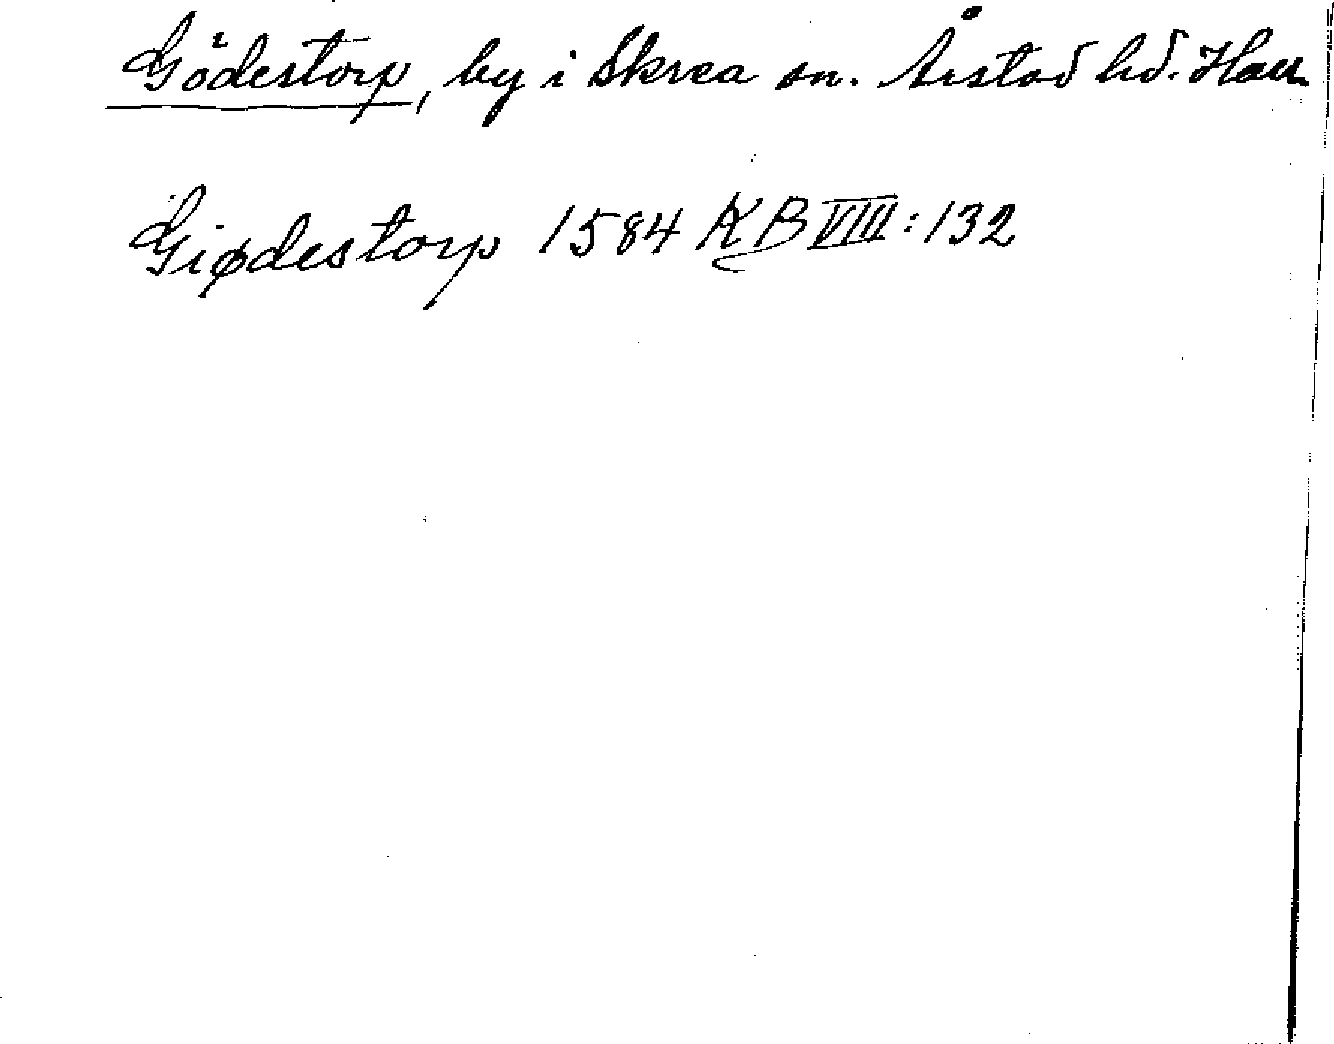 Gödestorp, by i Skrea sn. Årstad hd. Hall.
Giødestorp 1584 KB VIII:132